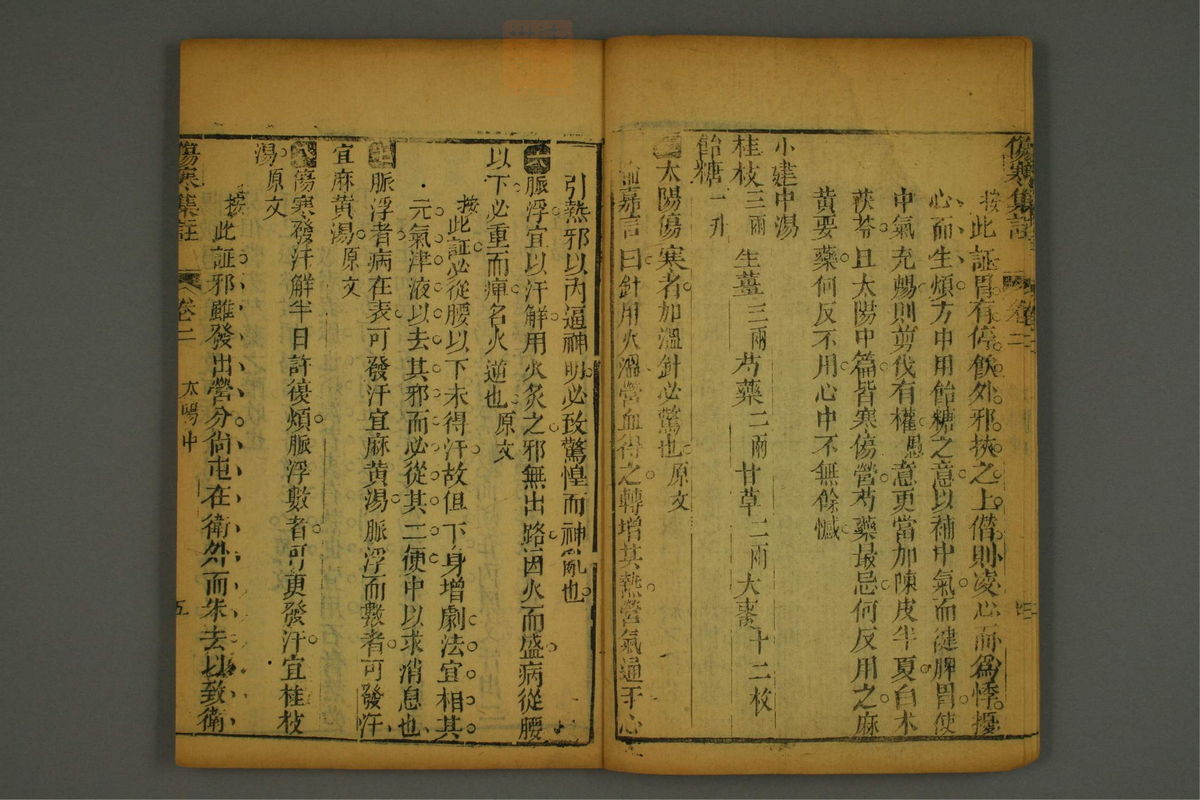 傷寒集註 卷二
按此証胃有停飲外邪挾之上僭則凌心而爲悸擾
心而生煩方中用飴糖之意以補中氣而健脾胃使
中氣充暢則剪伐有權愚意更當加陳皮半夏白朮
茯苓且太陽中篇皆寒傷營芍藥最忌何反用之麻
黃要藥何反不用心中不無餘憾
小建中湯
桂枝三兩 生薑三兩 芍藥二兩 甘草二兩 大棗十二枚
飴糖一升
太陽傷寒者加溫針必驚也原文
喻嘉言曰針用火溫營血得之轉增其熱營氣通于心
引熱邪以內逼神明必致驚惶而神亂也
六 脈浮宜以汗解用火灸之邪無出路因火而盛病從腰
以下必重而痺名火逆也原文
按此証必從腰以下未得汗故但下身增劇法宜相其
元氣津液以去其邪而必從其二便中以求消息也
七 脈浮者病在表可發汗宜麻黃湯脈浮而數者可發汗
宜麻黃湯原文
八 傷寒發汗解半日許復煩脈浮數者可更發汗宜桂枝
湯原文
按此証邪雖發出營分尙屯在衛外而未去以致衛
傷寒集註 卷二 太陽中 五